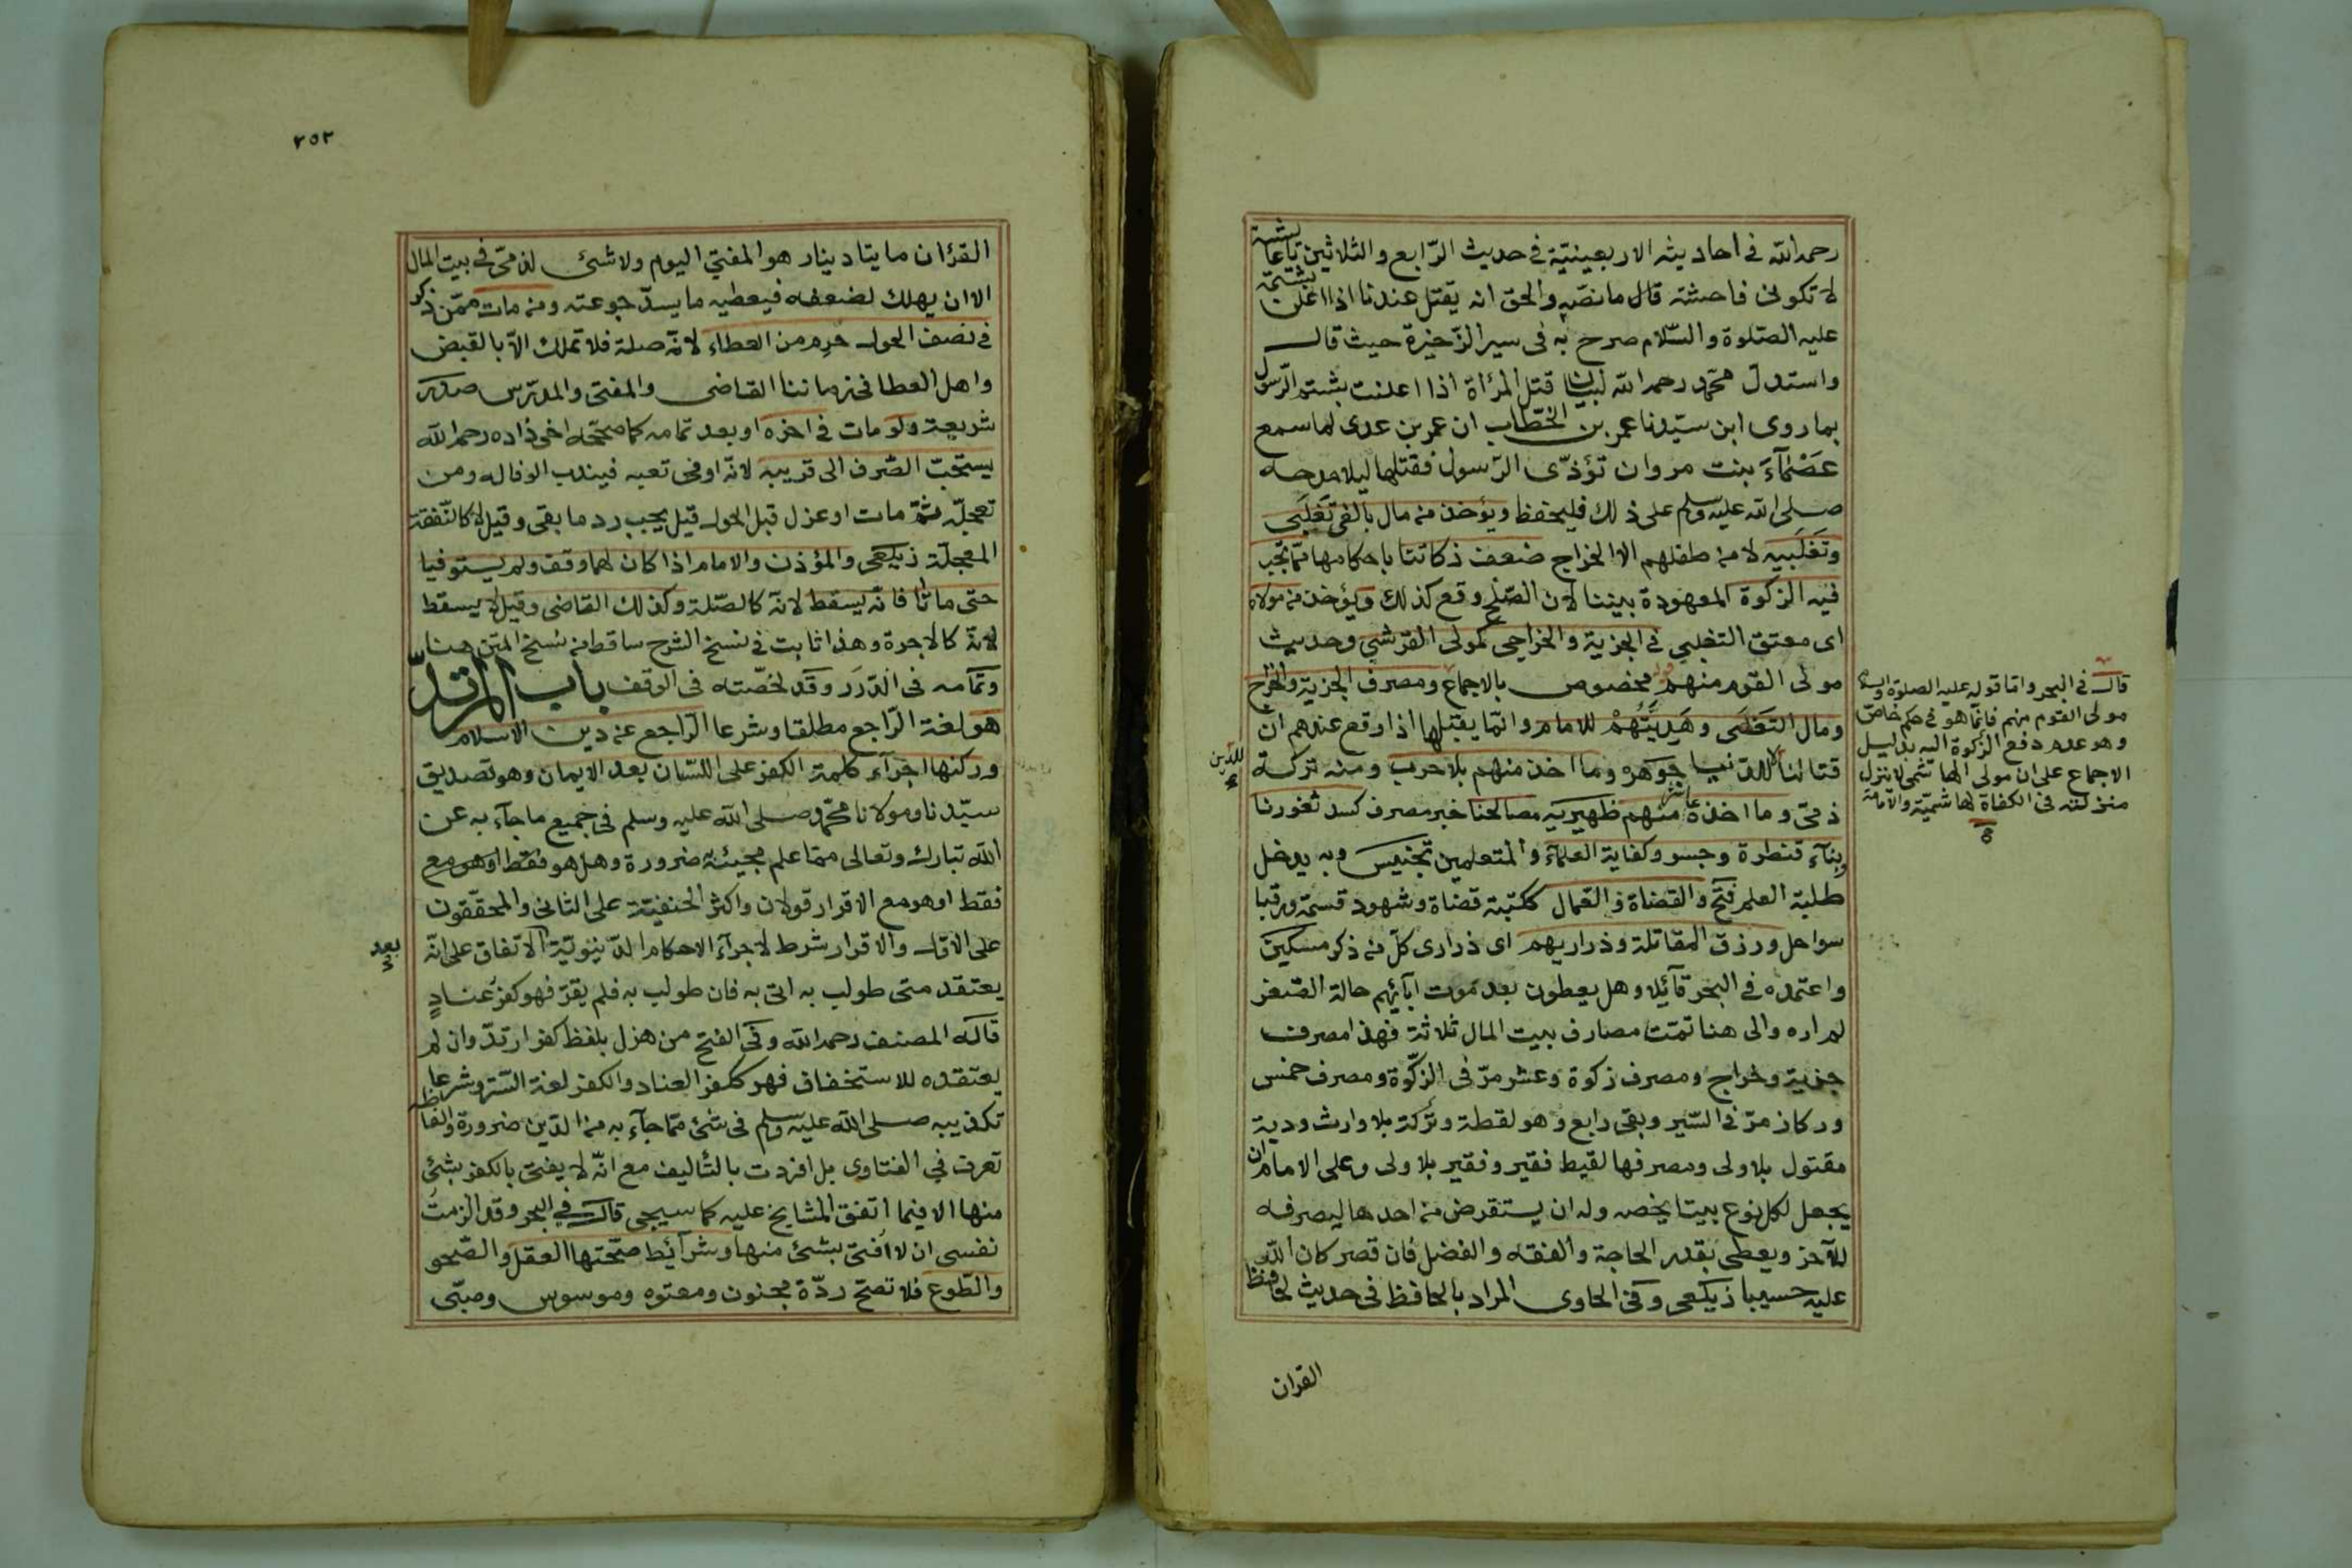 رحمه الله فى احاديثه الاربعينيّة فى حديث الرّابع والثلاثين يا عائشة
لا تكونى فاحشة قال ما نصّه والحق انه يقتل عندنا اذا اعلن بشتمه
عليه الصّلوة والسّلام صرح به فى سير الذّخيرة حيث قال
واستدلّ محمّد رحمه الله لبيان قتل المرأة اذا اعلنت بشتم الرّسول
بما روى ابن سيّدنا عمر بن الخطّاب ان عمر بن عدى لما سمع
عَصْمَآءَ بنت مروان تؤذّى الرّسول فقتلها ليلا مدحه
صلى الله عليه وسلم على ذلك فليحفظ ويؤخذ من مال بالغى تَغلَبى
وتَغلَبيه لا من طفلهم الا الخراج ضعف زكاتنا باحكامها ممّا تجب
فيه الزكوة المعهودة بيننا لان الصّلح وقع كذلك ويؤخذ من مولاه
اى معتق التغلبى فى الجزية والخراجى كمولى القرشى وحديث
مولى القوم منهم مخصوص بالاجماع ومصرف الجزية والخراج
ومال التغلبى وهَديَّتُهُمْ للامام وانّما يقبلها اذا وقع عندهم انّ
قتالنا للدّين لا الدّنيا جوهره وما اخذ منهم بلا حرب ومنه تركة
ذمّى وما اخذه عاشر منهم ظهيريه مصالحنا خبر مصرف كسد ثغورنا
وبنآء قنطرة وجسر وكفاية العلمآء والمتعلمين تجنيس وبه يدخل
طلبة العلم فتح والقضاة والعمال ككتبة قضاة وشهود قسمة ورقبا
سواحل ورزق المقاتلة وذراريهم اى ذرارى كلّ من ذكر مسكين
واعتمده فى البحر قآئلا وهل يعطون بعد موت ابآئهم حالة الصّغر
لم اره والى هنا تمّت مصارف بيت المال ثلاثة فهذا مصرف
جزية وخراج ومصرف زكوة وعشر مرّ فى الزّكوة ومصرف خمس
وركاز مرّ فى السّير وبقى رابع وهو لقطة وتركة بلا وارث ودية
مقتول بلا ولى ومصرفها لقيط فقير وفقير بلا ولى وعلى الامام ان
يجعل لكل نوع بيتا يخصه وله ان يستقرض من احدها ليصرفه
للآخر ويعطى بقدر الحاجة والفقه والفضل فان قصر كان الله
عليه حسيبا زيلعى وفى الحاوى المراد بالحافظ فى حديث لحافظ
القرآن
قال فى البحر وامّا قوله عليه الصلوة والسلام
مولى القوم منهم فانّما هو فى حكم خاصّ
وهو عدم دفع الزّكوة اليه بدليل
الاجماع على ان مولى الهاشمى لا ينزل
منزلته فى الكفاة لهاشميّة والامامة
٢٥٢
القرآن مايتا دينار هو المفتى اليوم ولا شئ لذمّى فى بيت المال
الا ان يهلك لضعفه فيعطيه ما يسدّ جوعته ومن مات ممّن ذكر
فى نصف الحول حُرِم من العطاء لانّه صلة فلا تملك الّا بالقبض
واهل العطا فى زماننا القاضى والمفتى والمدرّس صدر
شريعة ولو مات فى اخره او بعد تمامه كما صحّحه اخى زاده رحمه الله
يستحبّ الصّرف الى قريبه لانّه اوفى تعبه فيندب الوفا له ومن
تعجلّه ثمّ مات او عزل قبل الحول قيل يجب رد ما بقى وقيل لا كالنّفقة
المعجلّة زيلعى والمؤذن والامام اذا كان لهما وقف ولم يستوفيا
حتى ماتا فانّه يسقط لانّه كالصّلة وكذلك القاضى وقيل لا يسقط
لانّه كالاجرة وهذا ثابت فى نسخ الشرح ساقط من نسخ المتن هنا
وتمامه فى الدّرَر وقد لخّصته فى الوقف باب المرتدّ
هو لغة الرّاجع مطلقا وشرعا الرّاجع عن دين الاسلام
وركنها اجرآء كلمة الكفر على اللسّان بعد الايمان وهو تصديق
سيّدنا ومولانا محمّد صلى الله عليه وسلم فى جميع ما جآء به عن
الله تبارك وتعالى ممّا علم مجيئه ضرورة وهل هو فقط او هو مع
فقط او هو مع الاقرار قولان واكثر الحنفيّة على الثانى والمحقّقون
على الاوّل والاقرار شرط لاجرآء الاحكام الدّنيويّة بعد الاتّفاق على انّه
يعتقد متى طولب به اتى به فان طولب به فلم يقرّ فهو كفرُ عنادٍ
قاله المصنف رحمه الله وفى الفتح من هزل بلفظ كفر ارتدّ وان لم
يعتقده للاستخفاف فهو ككفر العناد والكفر لغة السّتر وشرعا
تكذيبه صلى الله عليه وسلم فى شئ ممّا جآء به من الدّين ضرورة والفاظه
تعرف فى الفتاوى بل افردت بالتّأليف مع انّه لا يفتى بالكفر بشئ
منها الا فيما اتفق المشايخ عليه كما سيجى قال فى البحر وقد الزمتُ
نفسى ان لا اُفتى بشئ منها وشرآئط صحّتها العقل والصّحو
والطّوع فلا تصحّ ردّة مجنون ومعتوه وموسوس وصبّى